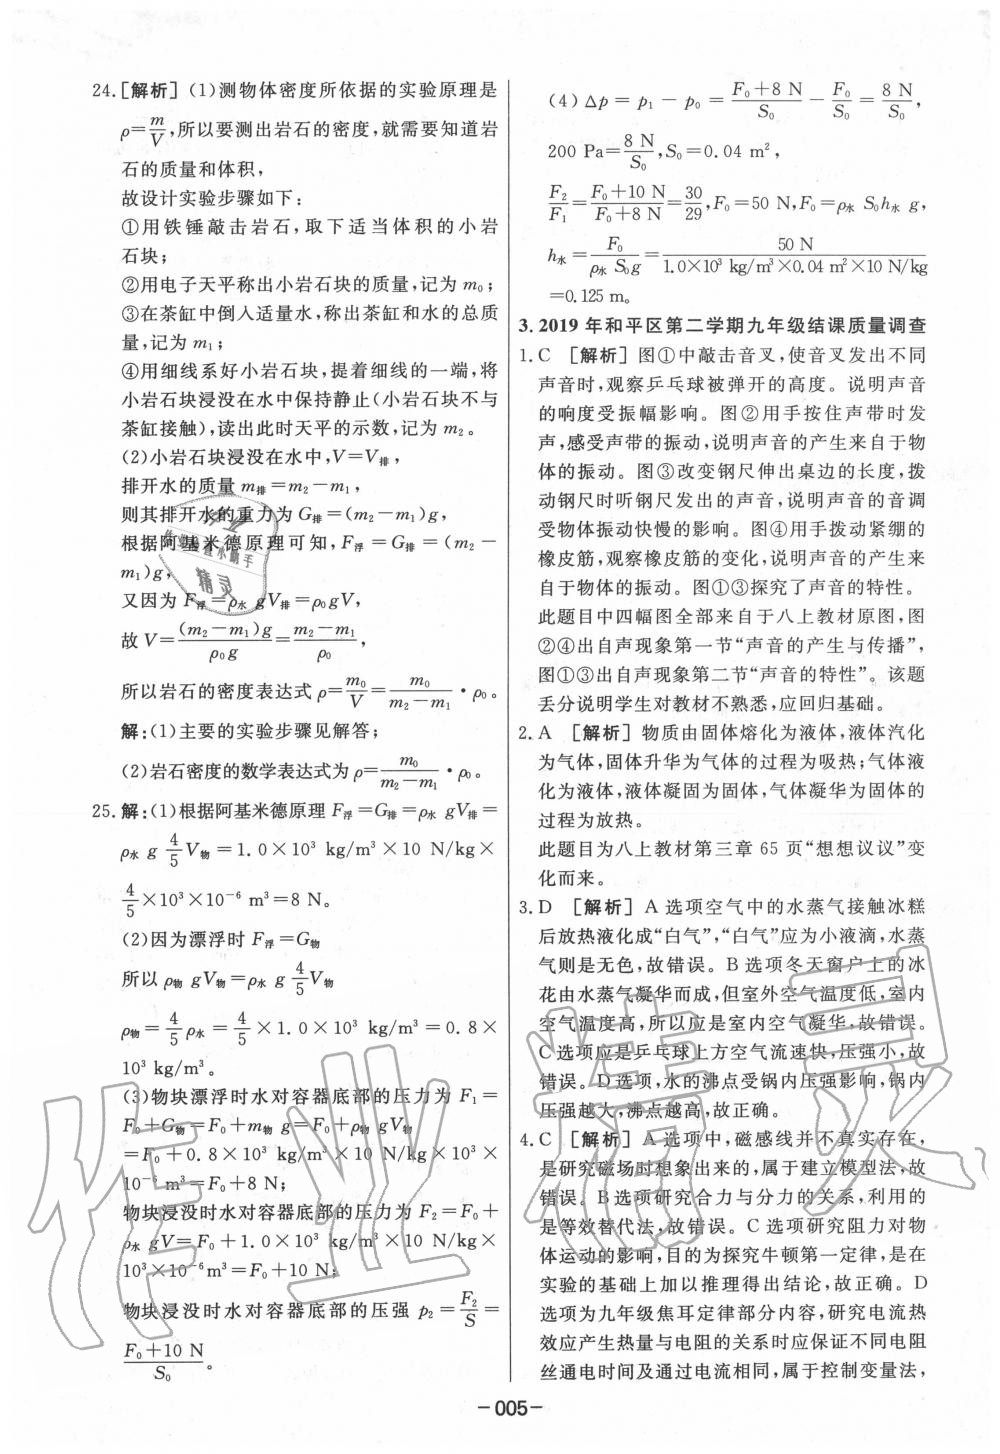 24. [解析] (1)测物体密度所依据的实验原理是
ρ=m/V,所以要测出岩石的密度,就需要知道岩
石的质量和体积,
故设计实验步骤如下:
①用铁锤敲击岩石,取下适当体积的小岩
石块;
②用电子天平称出小岩石块的质量,记为 m₀;
③在茶缸中倒入适量水,称出茶缸和水的总质
量,记为 m₁;
④用细线系好小岩石块,提着细线的一端,将
小岩石块浸没在水中保持静止(小岩石块不与
茶缸接触),读出此时天平的示数,记为 m₂。
(2)小岩石块浸没在水中,V=V排,
排开水的质量 m排=m₂-m₁,
则其排开水的重力为 G排=(m₂-m₁)g,
根据阿基米德原理可知,F浮=G排=(m₂-
m₁)g,
又因为 F浮=ρ水 gV排=ρ₀gV,
故 V=(m₂-m₁)g/ρ₀g=m₂-m₁/ρ₀,
所以岩石的密度表达式 ρ=m₀/V=m₀/(m₂-m₁)·ρ₀。
解:(1)主要的实验步骤见解答;
(2)岩石密度的数学表达式为 ρ=m₀/(m₂-m₁)·ρ₀。
25. 解:(1)根据阿基米德原理 F浮=G排=ρ水 gV排=
ρ水 g 4/5 V物=1.0×10³ kg/m³×10 N/kg×
4/5×10³×10⁻⁶ m³=8 N。
(2)因为漂浮时 F浮=G物
所以 ρ物 gV物=ρ水 g 4/5 V物
ρ物=4/5 ρ水=4/5×1.0×10³ kg/m³=0.8×
10³ kg/m³。
(3)物块漂浮时水对容器底部的压力为 F₁=
F₀+G物=F₀+m物 g=F₀+ρ物 gV物
=F₀+0.8×10³ kg/m³×10 N/kg×10³×
10⁻⁶ m³=F₀+8 N;
物块浸没时水对容器底部的压力为 F₂=F₀+
ρ水 gV=F₀+1.0×10³ kg/m³×10 N/kg×
10³×10⁻⁶m³=F₀+10 N;
物块浸没时水对容器底部的压强 p₂=F₂/S=
F₀+10 N/S₀。
(4)Δp=p₁-p₀=F₀+8 N/S₀-F₀/S₀=8 N/S₀,
200 Pa=8 N/S₀,S₀=0.04 m²,
F₂/F₁=F₀+10 N/F₀+8 N=30/29,F₀=50 N,F₀=ρ水 S₀h水 g,
h水=F₀/ρ水 S₀g=50 N/1.0×10³ kg/m³×0.04 m²×10 N/kg
=0.125 m。
3. 2019 年和平区第二学期九年级结课质量调查
1. C [解析] 图①中敲击音叉,使音叉发出不同
声音时,观察乒乓球被弹开的高度。说明声音
的响度受振幅影响。图②用手按住声带时发
声,感受声带的振动,说明声音的产生来自于物
体的振动。图③改变钢尺伸出桌边的长度,拨
动钢尺时听钢尺发出的声音,说明声音的音调
受物体振动快慢的影响。图④用手拨动紧绷的
橡皮筋,观察橡皮筋的变化,说明声音的产生来
自于物体的振动。图①③探究了声音的特性。
此题目中四幅图全部来自于八上教材原图,图
②④出自声现象第一节“声音的产生与传播”,
图①③出自声现象第二节“声音的特性”。该题
丢分说明学生对教材不熟悉,应回归基础。
2. A [解析] 物质由固体熔化为液体,液体汽化
为气体,固体升华为气体的过程为吸热;气体液
化为液体,液体凝固为固体,气体凝华为固体的
过程为放热。
此题目为八上教材第三章 65 页“想想议议”变
化而来。
3. D [解析] A 选项空气中的水蒸气接触冰糕
后放热液化成“白气”,“白气”应为小液滴,水蒸
气则是无色,故错误。B 选项冬天窗户上的冰
花由水蒸气凝华而成,但室外空气温度低,室内
空气温度高,所以应是室内空气凝华,故错误。
C 选项应是乒乓球上方空气流速快,压强小,故
错误。D 选项,水的沸点受锅内压强影响,锅内
压强越大,沸点越高,故正确。
4. C [解析] A 选项中,磁感线并不真实存在,
是研究磁场时想象出来的,属于建立模型法,故
错误。B 选项研究合力与分力的关系,利用的
是等效替代法,故错误。C 选项研究阻力对物
体运动的影响,目的为探究牛顿第一定律,是在
实验的基础上加以推理得出结论,故正确。D
选项为九年级焦耳定律部分内容,研究电流热
效应产生热量与电阻的关系时应保证不同电阻
丝通电时间及通过电流相同,属于控制变量法,
作业精灵
-005-